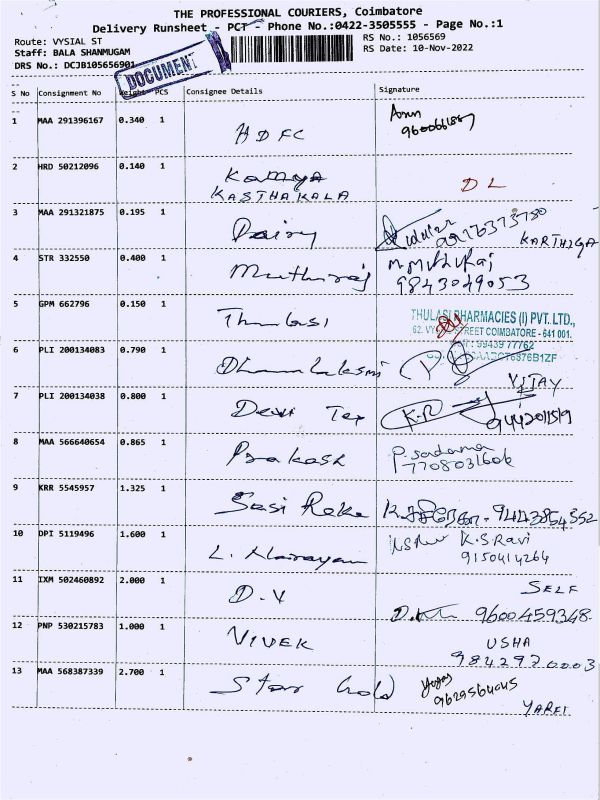 THE PROFESSIONAL COURIERS, Coimbatore
Delivery Runsheet - PCT - Phone No.:0422-3505555 - Page No.:1
Route: VYSIAL ST RS No.: 1056569
Staff: BALA SHANMUGAM RS Date: 10-Nov-2022
DRS No.: DCJB105656901
DOCUMENT
S No Consignment No Weight PCS Consignee Details Signature
1 MAA 291396167 0.340 1 HDFC
2 HRD 50212096 0.140 1 Kamya DL
KASTHAKALA
3 MAA 291321875 0.195 1 Dairy
KARTHIGA
4 STR 332550 0.400 1 Muthuraj
9843049053
5 GPM 662796 0.150 1 Thulasi THULASI PHARMACIES (I) PVT. LTD.,
STREET COIMBATORE - 641 001.
99439 77762
6 PLI 200134083 0.790 1
VIJAY
7 PLI 200134038 0.800 1 Devi Tex K.R
8 MAA 566640654 0.865 1 Prakash P. Sadama
7708031606
9 KRR 5545957 1.325 1 Sasi Reka 9443854352
10 DPI 5119496 1.600 1 L. Narayan K.S Ravi
9150414264
11 IXM 502460892 2.000 1 D.V SELF
9600459348
12 PNP 530215783 1.000 1 VIVEK USHA
9842920003
13 MAA 568387339 2.700 1 Star Gold